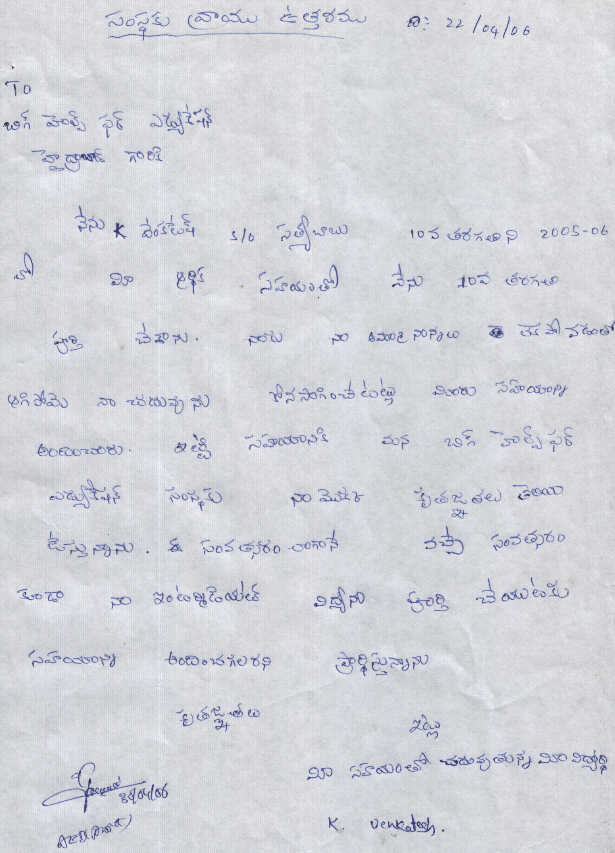 సంస్థకు వ్రాయు ఉత్తరము ది: 22/04/06
To
బిగ్ హెల్ప్ ఫర్ ఎడ్యుకేషన్
హైద్రాబాద్ గారికి
నేను K వెంకటేష్ s/o సత్యబాబు 10వ తరగతిని 2005-06
లో మీ ఆర్థిక సహయంతో నేను 10వ తరగతి
పూర్తి చేశాను. నాకు నా అమ్మానాన్నలు లేక పోవడంతో
ఆగిపోయె నా చదువును కొనసాగించుటట్లు మీరు సహయాన్ని
అందించారు. ఇట్టి సహయానికి మన బిగ్ హెల్ప్ ఫర్
ఎడ్యుకేషన్ సంస్థకు నా యొక్క కృతజ్ఞతలు తెలియ
జేస్తున్నాను. ఈ సంవత్సరం లాగానే వచ్చే సంవత్సరం
కూడా నా ఇంటర్మీడియట్ విద్యను పూర్తి చేయుటకు
సహయాన్ని అందించగలరని ప్రార్థిస్తున్నాను
కృతజ్ఞతలు
ఇట్లు
మీ సహయంతో చదువుతున్న మీ విద్యార్థి
K. Venkatesh.